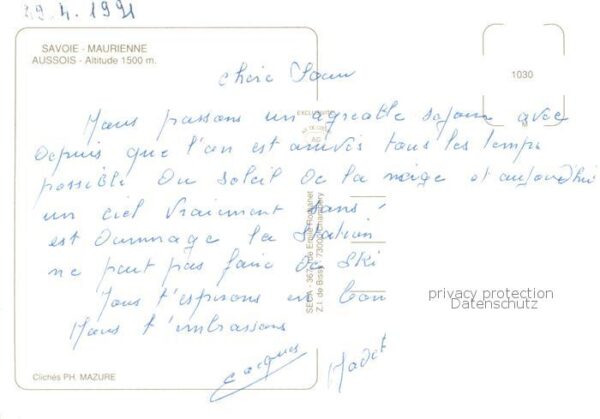 29.4.1991
SAVOIE - MAURIENNE
AUSSOIS - Altitude 1500 m.
1030
chère Soeur
Nous passons un agreable sejour avec
depuis que l'on est arrivés tous les temps
possible du soleil de la neige et aujourd'hui
un ciel vraiment sans
est dommage la station
ne peut pas faire de ski
Nous t'esperons en bon
Nous t'embrassons
Jacques
EXCLUSIVITÉ
AG
SECA - 367, Rue Emile Romanet
Z.I. de Bissy - 73000 Chambéry
privacy protection
Datenschutz
Clichés PH. MAZURE